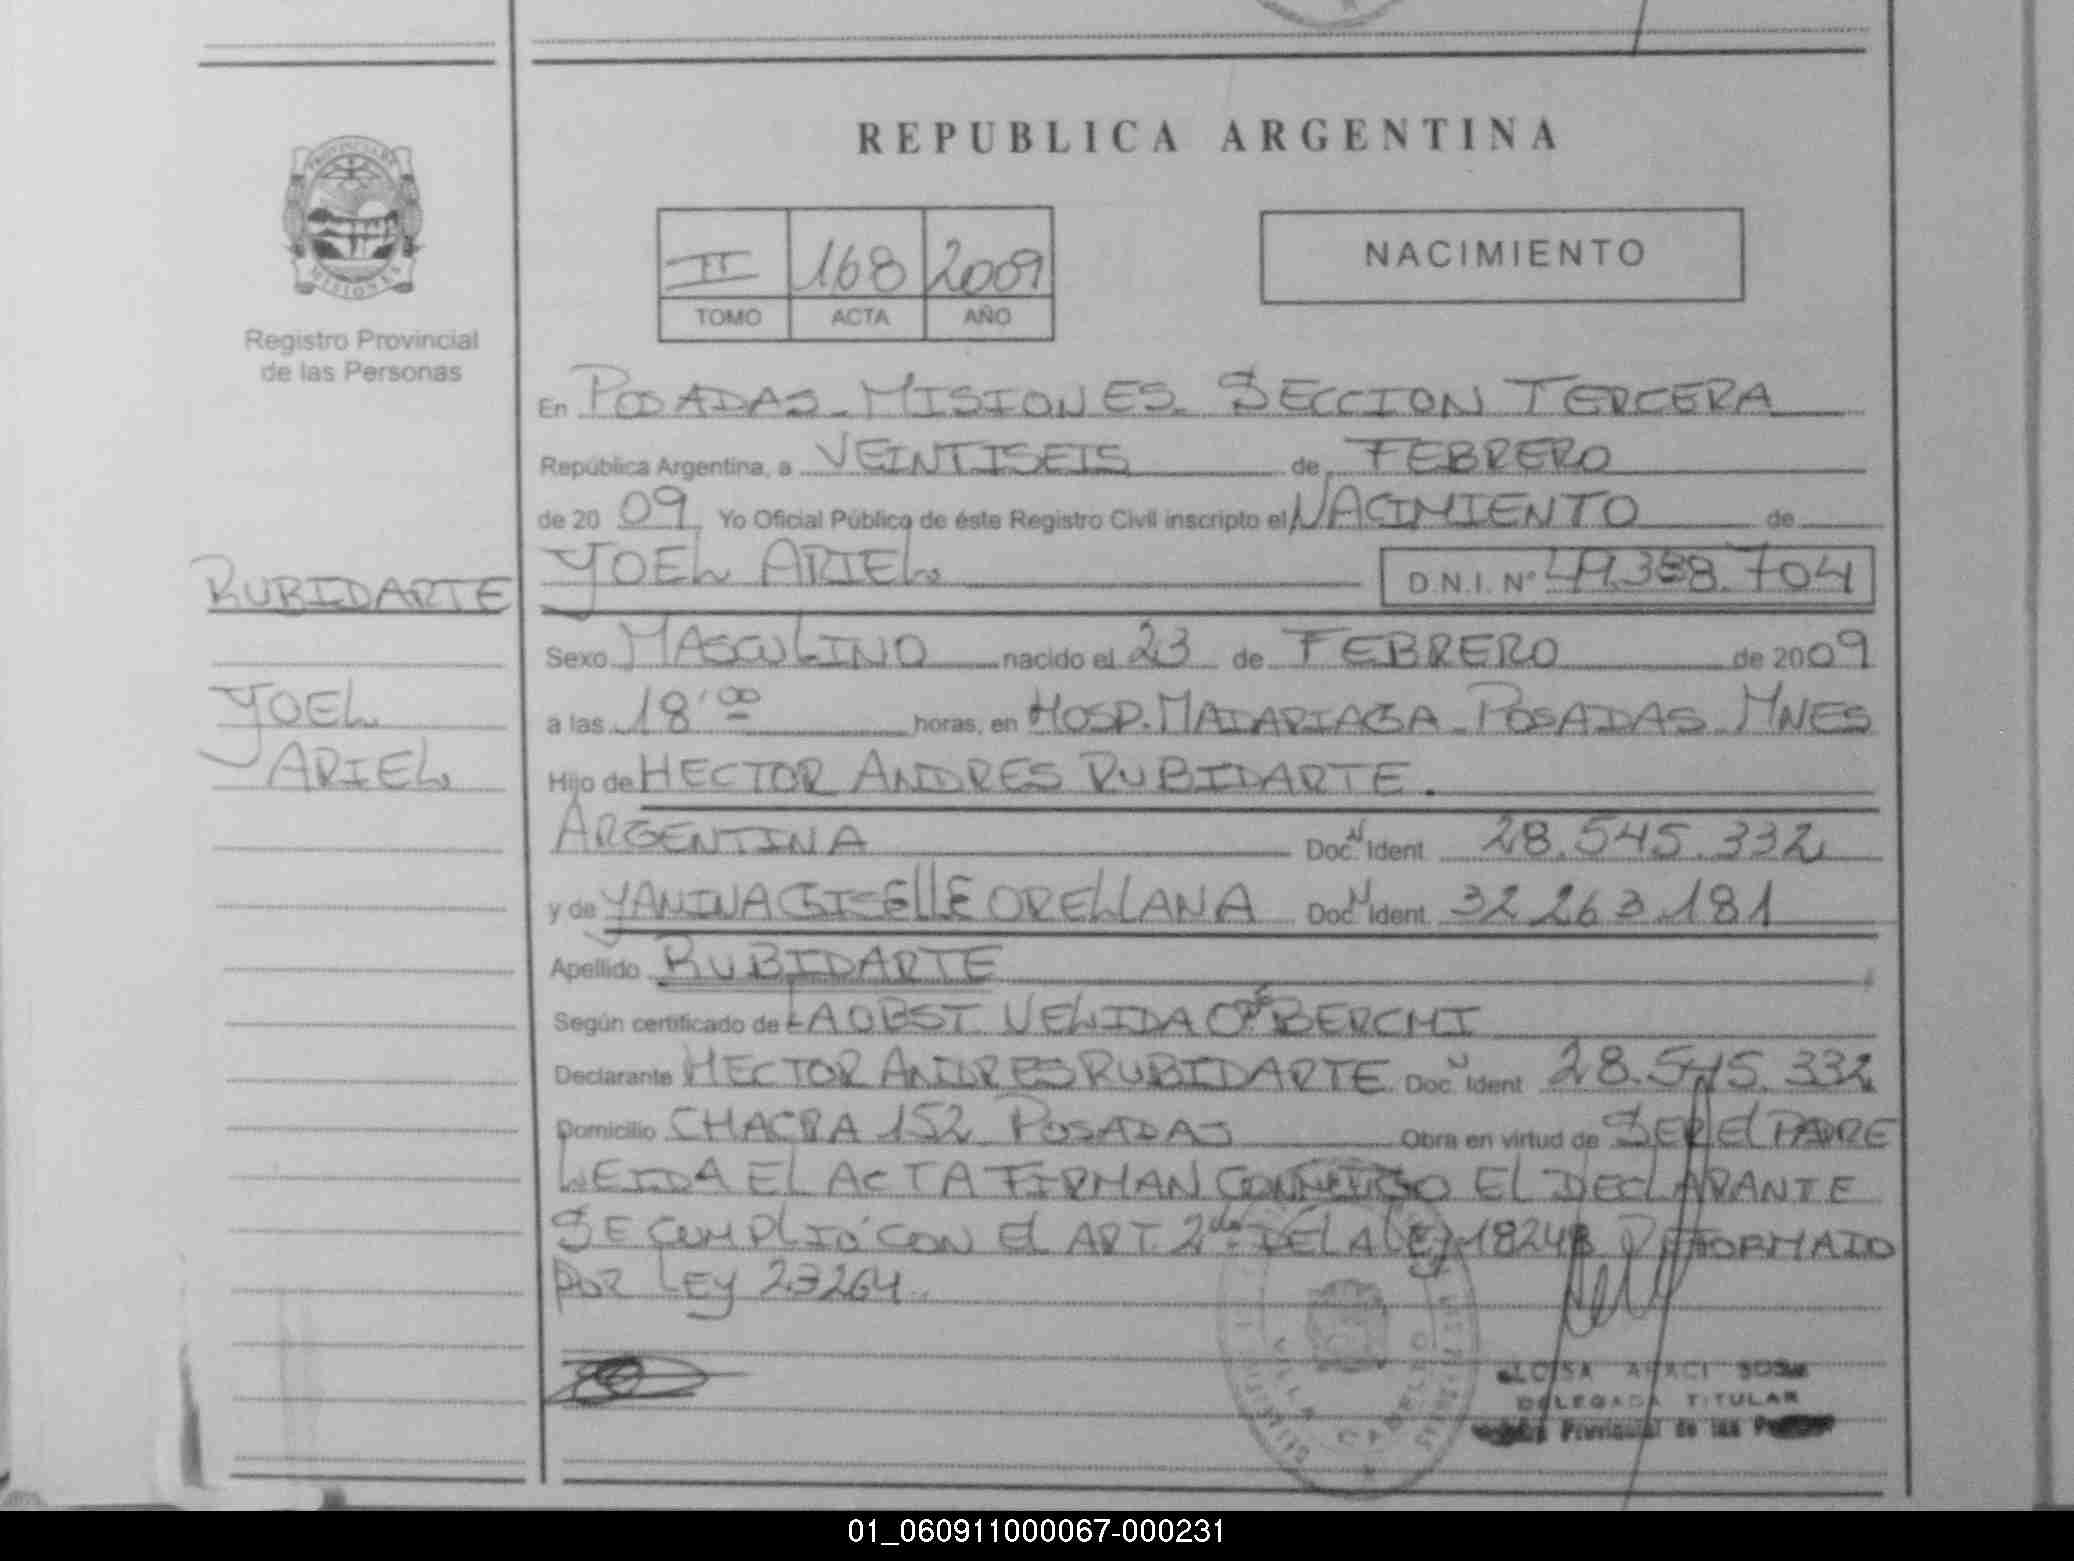 REPUBLICA ARGENTINA
PROVINCIA DE
MISIONES
Registro Provincial
de las Personas
II 168 2009
TOMO ACTA AÑO
NACIMIENTO
En POSADAS - MISIONES - SECCION TERCERA
República Argentina, a VEINTISEIS de FEBRERO
de 2009 Yo Oficial Público de éste Registro Civil inscripto el NACIMIENTO de
RUBIDARTE
YOEL ARIEL
D.N.I. Nº 49.388.704
Sexo MASCULINO nacido el 23 de FEBRERO de 2009
YOEL
ARIEL
a las 18'00 horas, en HOSP. MADARIAGA - POSADAS - MNES
Hijo de HECTOR ANDRES RUBIDARTE.
ARGENTINA Doc. N Ident 28.545.332
y de YANINA GISELLE ORELLANA Doc N Ident. 32 263.181
Apellido RUBIDARTE
Según certificado de LA OBST VELIDA BERCHI
Declarante HECTOR ANDRES RUBIDARTE Doc. N Ident 28.545.332
Domicilio CHACRA 152 POSADAS Obra en virtud de SER EL PADRE
LEIDA EL ACTA FIRMAN CONMIGO EL DECLARANTE
SE CUMPLIO CON EL ART. 2do DE LA LEY 18248 REFORMADO
POR LEY 23264.
VILLA CABELLO
ARACI SOSA
DELEGADA TITULAR
Provincial de las
01_060911000067-000231